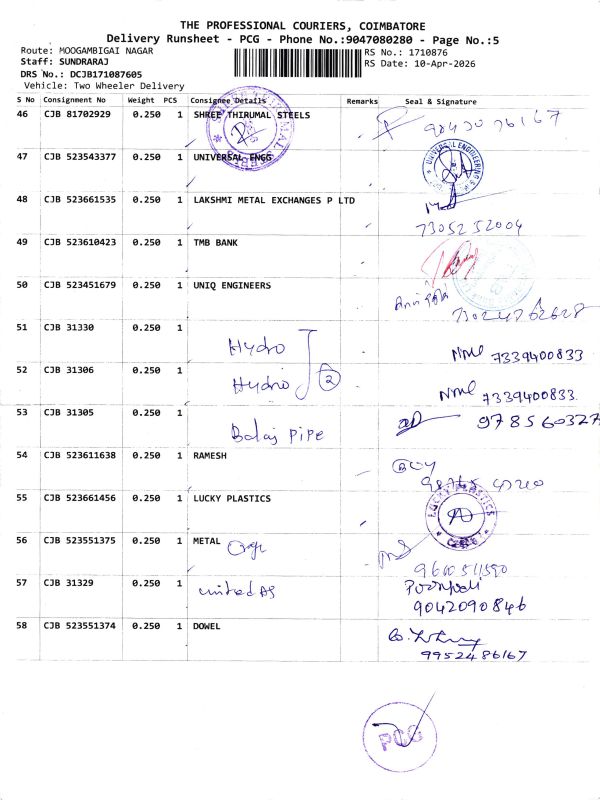 THE PROFESSIONAL COURIERS, COIMBATORE
Delivery Runsheet - PCG - Phone No.:9047080280 - Page No.:5
Route: MOOGAMBIGAI NAGAR RS No.: 1710876
Staff: SUNDRARAJ RS Date: 10-Apr-2026
DRS No.: DCJB171087605
Vehicle: Two Wheeler Delivery
S No Consignment No Weight PCS Consignee Details Remarks Seal & Signature
46 CJB 81702929 0.250 1 SHREE THIRUMAL STEELS
47 CJB 523543377 0.250 1 UNIVERSAL ENGG
UNIVERSAL ENGINEERING
48 CJB 523661535 0.250 1 LAKSHMI METAL EXCHANGES P LTD
7305252004
49 CJB 523610423 0.250 1 TMB BANK
50 CJB 523451679 0.250 1 UNIQ ENGINEERS
51 CJB 31330 0.250 1
Hydro 7339400833
52 CJB 31306 0.250 1
Hydro 2 7339400833
53 CJB 31305 0.250 1
Balaj Pipe 978560327
54 CJB 523611638 0.250 1 RAMESH
55 CJB 523661456 0.250 1 LUCKY PLASTICS
LUCKY PLASTICS
56 CJB 523551375 0.250 1 METAL
57 CJB 31329 0.250 1
united AS
9042090846
58 CJB 523551374 0.250 1 DOWEL
9952486167
PCG